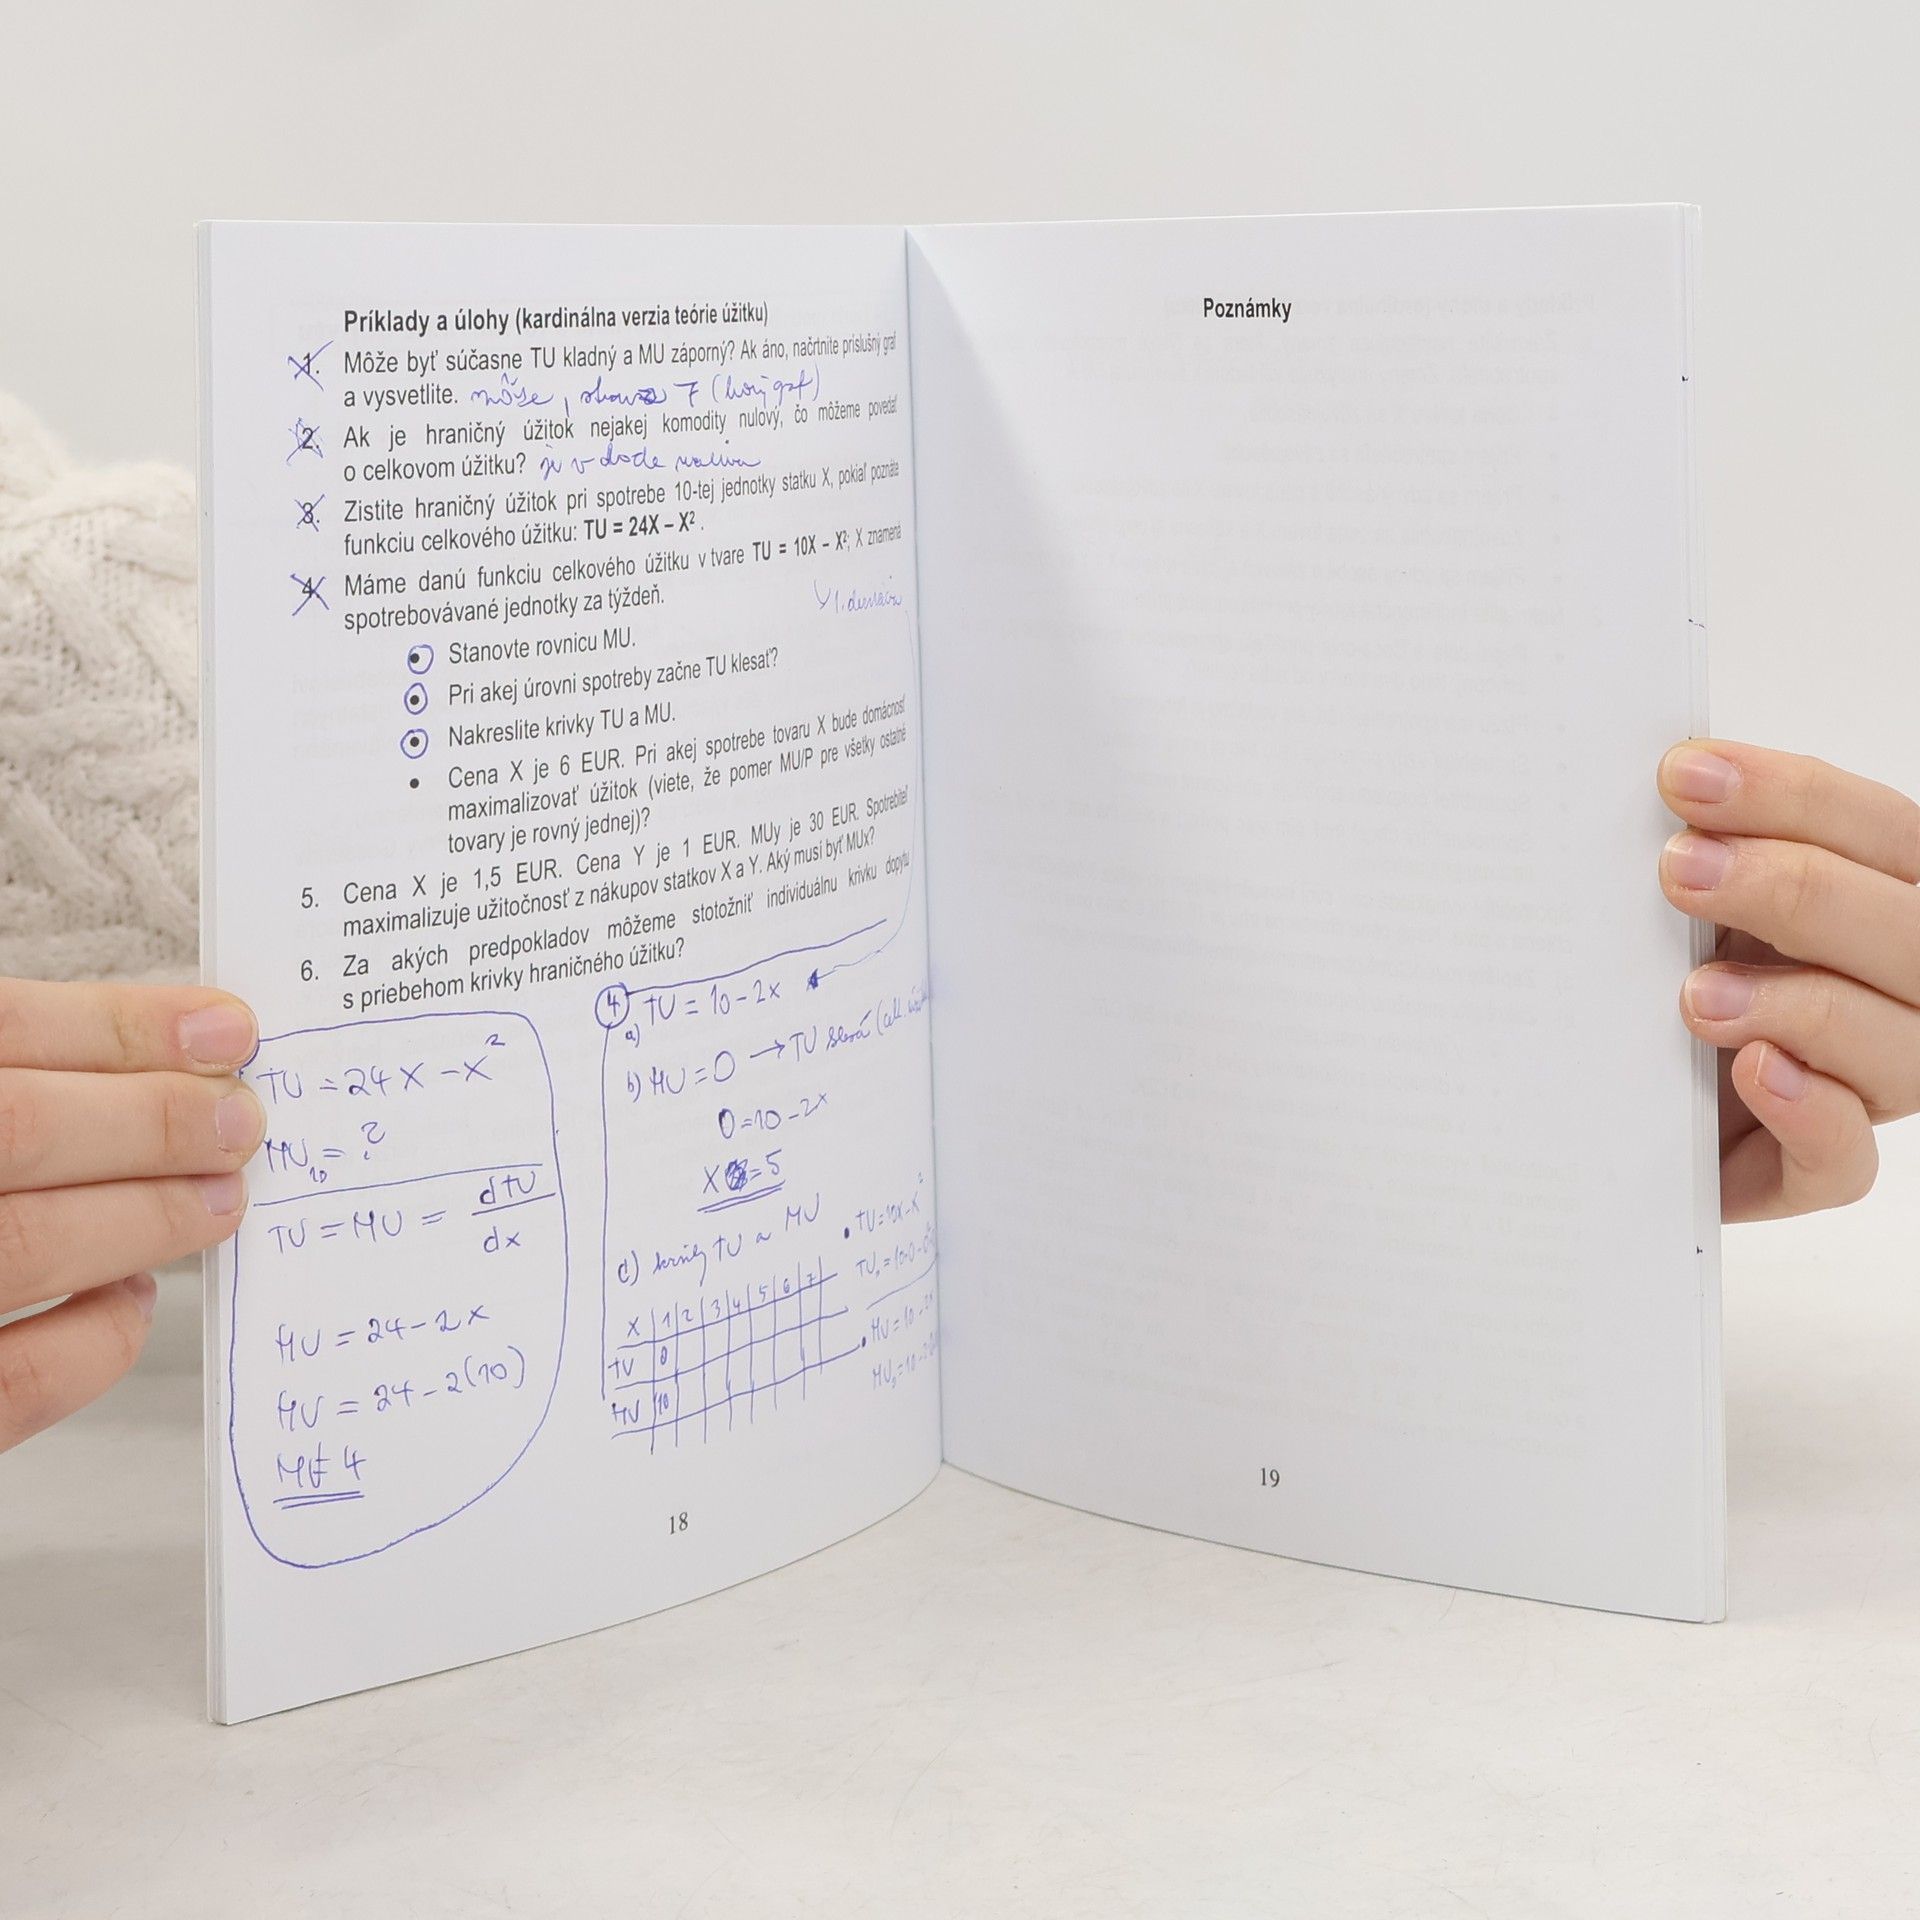 Príklady a úlohy (kardinálna verzia teórie úžitku)
1. Môže byť súčasne TU kladný a MU záporný? Ak áno, načrtnite príslušný graf
a vysvetlite. môže, 7 (
2. Ak je hraničný úžitok nejakej komodity nulový, čo môžeme povedať
o celkovom úžitku? je v bode
3. Zistite hraničný úžitok pri spotrebe 10-tej jednotky statku X, pokiaľ poznáte
funkciu celkového úžitku: TU = 24X – X².
4. Máme danú funkciu celkového úžitku v tvare TU = 10X – X²; X znamená
spotrebovávané jednotky za týždeň.
1. derivácia
• Stanovte rovnicu MU.
• Pri akej úrovni spotreby začne TU klesať?
• Nakreslite krivky TU a MU.
• Cena X je 6 EUR. Pri akej spotrebe tovaru X bude domácnosť
maximalizovať úžitok (viete, že pomer MU/P pre všetky ostatné
tovary je rovný jednej)?
5. Cena X je 1,5 EUR. Cena Y je 1 EUR. MUy je 30 EUR. Spotrebiteľ
maximalizuje užitočnosť z nákupov statkov X a Y. Aký musí byť MUx?
6. Za akých predpokladov môžeme stotožniť individuálnu krivku dopytu
s priebehom krivky hraničného úžitku?
TU = 24X – X²
MU₁₀ = ?
TU = MU = dTU
dx
MU = 24 – 2x
MU = 24 – 2(10)
MU = 4
4
a) TU = 10 – 2x
b) MU = 0 → TU
0 = 10 – 2x
X = 5
c) krivky TU a MU
X 1 2 3 4 5 6 7
TU 0
MU 10
• TU = 10x – x²
• MU = 10 – 2x
18
Poznámky
19